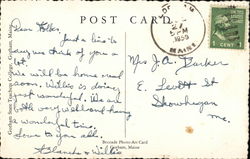 POST CARD
Dear Folks,
Just a line to
say we think of you a
lot.
We will be home real
soon. Willis is doing
just wonderful. We are
both very well and having
a wonderful time
Love to you all.
Blanche & Willis
Mrs J.A. Parker
E. Leavitt St
Skowhegan
Me.
MAINE
1 CENT 1
Gorham State Teachers College, Gorham, Maine
Bromide Photo-Art Card
Gorham, Maine